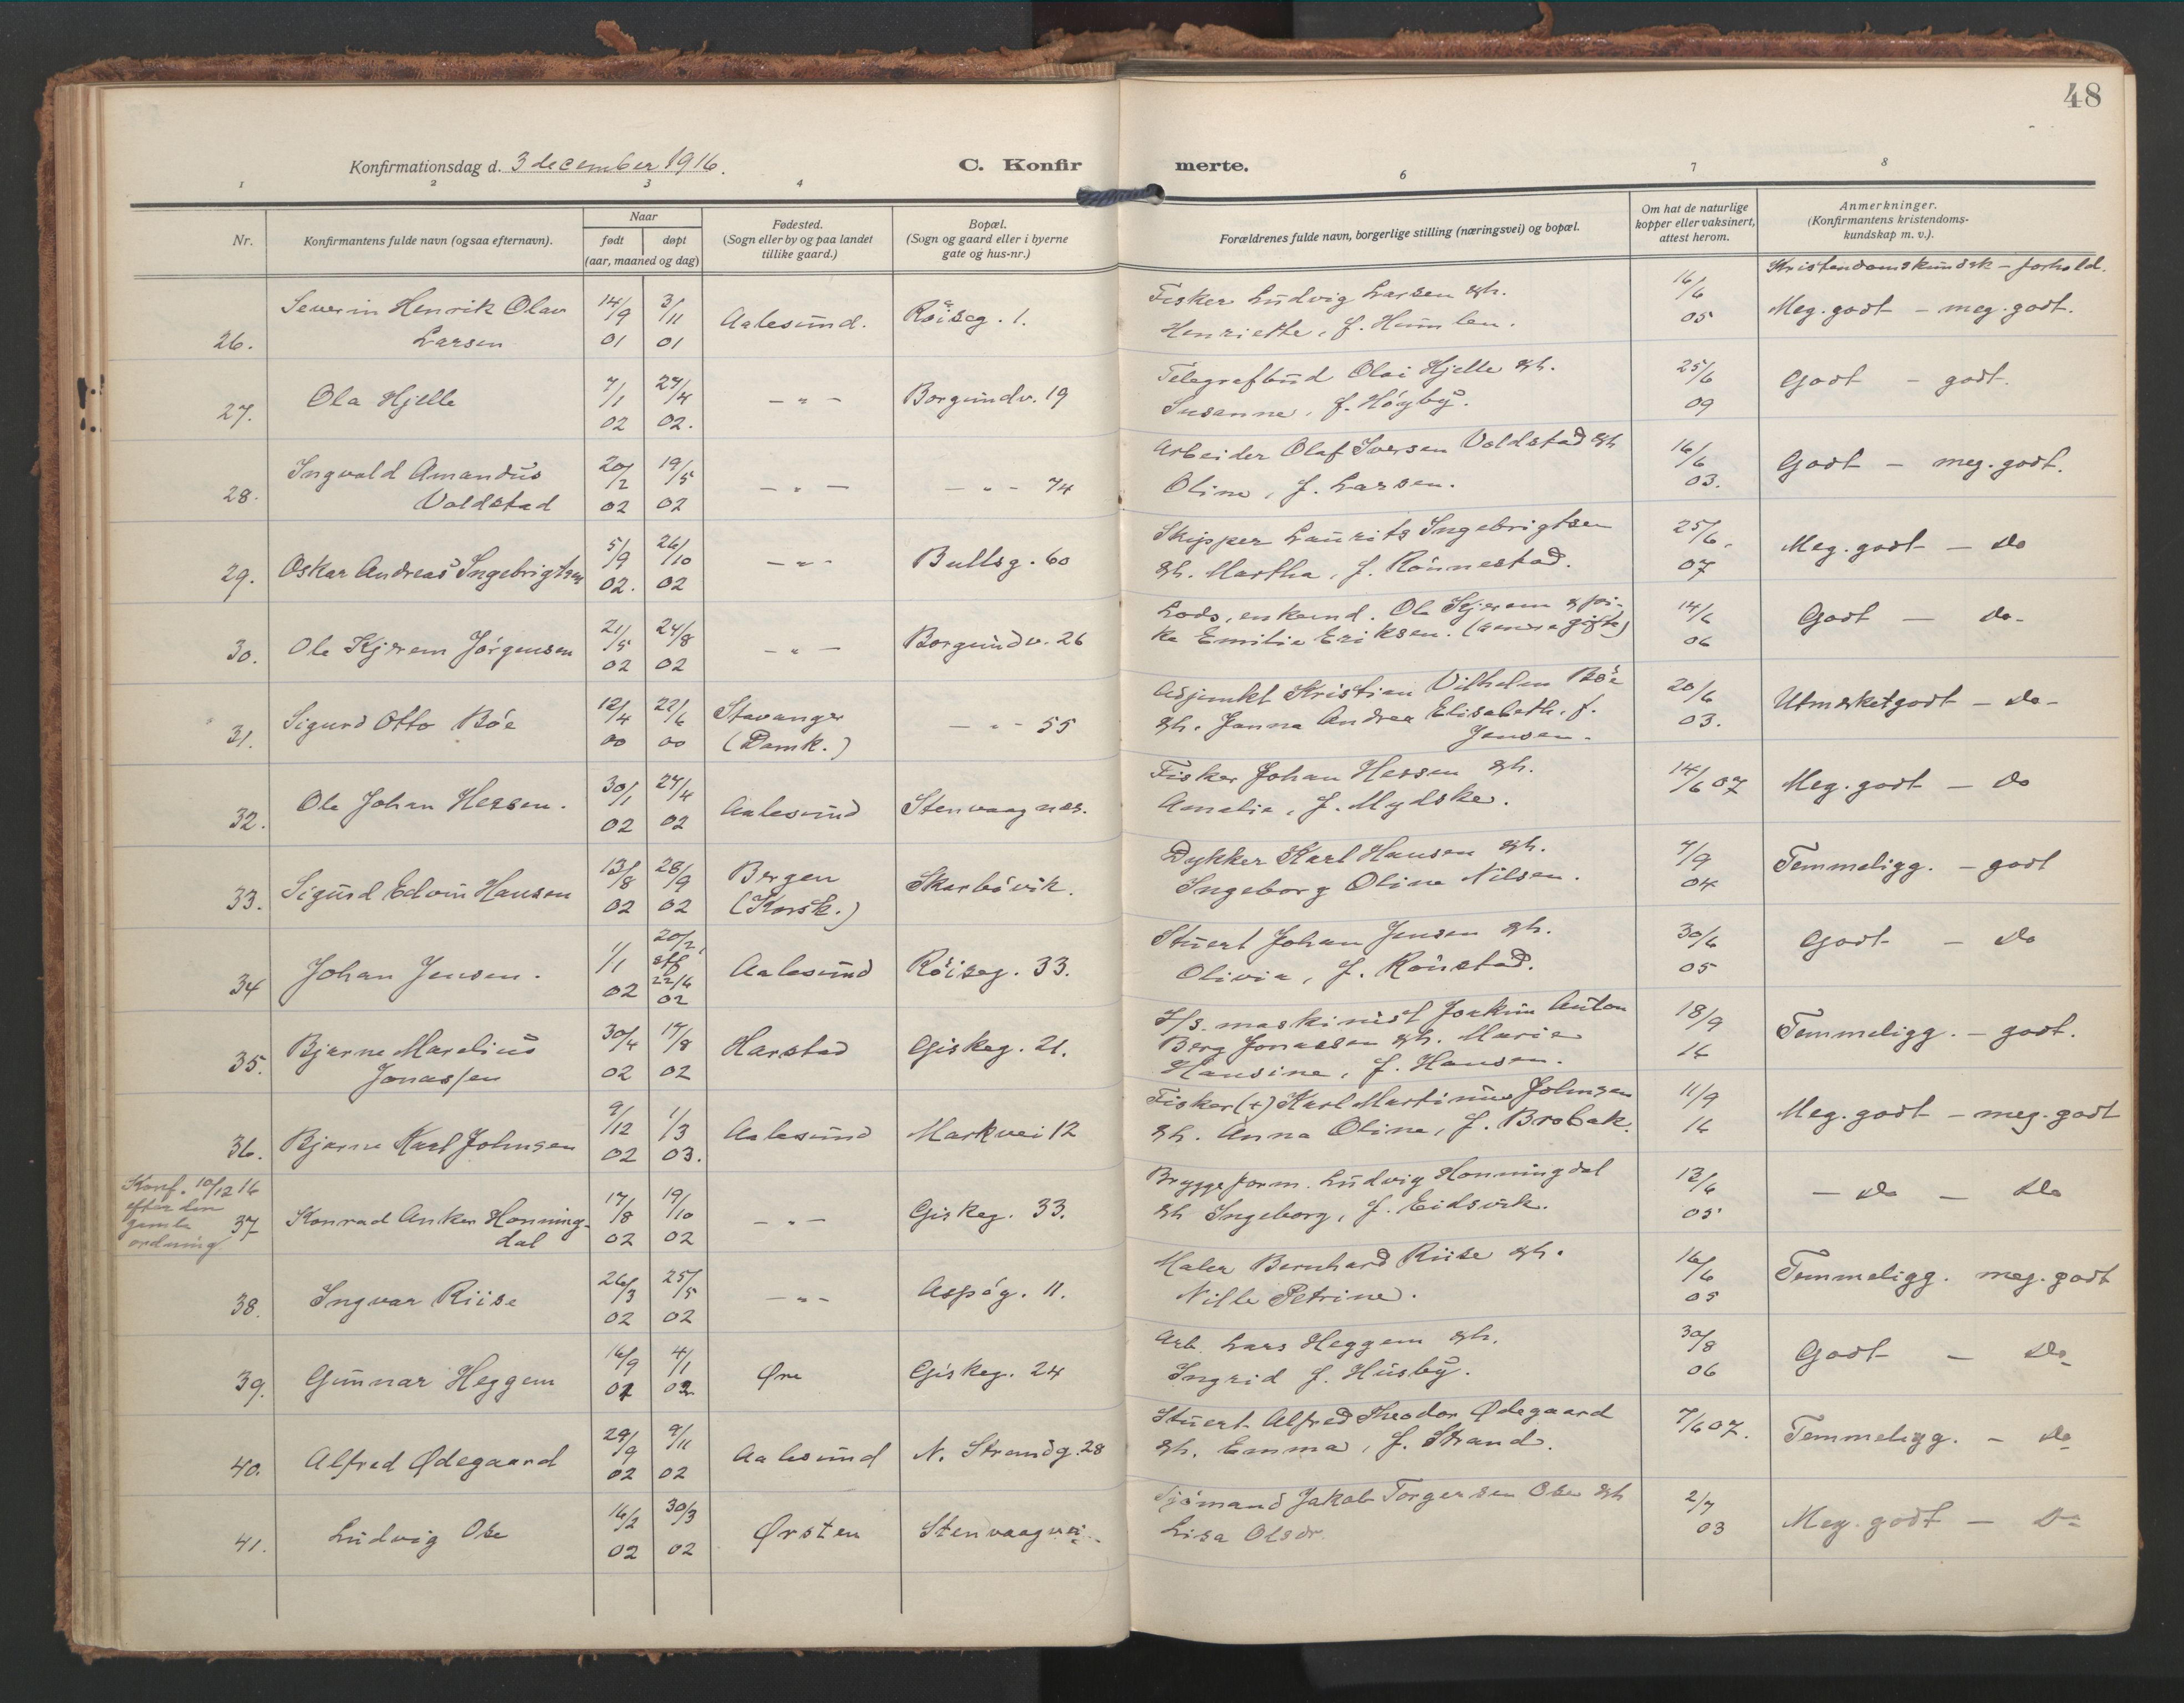 48
Konfirmationsdag d. 3 december 1916.
C. Konfir
merte.
1 2 3 4 6 7 8
Nr.
Konfirmantens fulde navn (ogsaa efternavn).
Naar
født døpt
(aar, maaned og dag)
Fødested.
(Sogn eller by og paa landet
tillike gaard.)
Bopæl.
(Sogn og gaard eller i byerne
gate og hus-nr.)
Forældrenes fulde navn, borgerlige stilling (næringsvei) og bopæl.
Om hat de naturlige
kopper eller vaksinert,
attest herom.
Anmerkninger.
(Konfirmantens kristendoms-
kundskap m. v.).
Kristendomskundsk - forhold.
Severin Henrik Olav 14/9 3/11 Aalesund. Röiseg. 1. Fisker Ludvig Larsen & h. 16/6 Meg. godt - meg. godt.
26. Larsen 01 01 Henriette, f. Humlen. 05
27. Ola Hjelle 7/1 27/4 - " - Borgundv. 19 Telegrafbud Olai Hjelle & h. 25/6 Godt - godt.
02 02. Susanne, f. Höyby. 09
Ingvald Amandus 20/2 19/5 - " - - " - 74 Arbeider Olaf Iversen Voldstad & h 16/6 Godt - meg. godt.
28. Voldstad 02 02 Oline, f. Larsen. 03.
29. Oskar Andreas Ingebrigtsen 5/9 26/10 - " - Bullsg. 60 Skipper Laurits Ingebrigtsen 25/6. Meg. godt - do
02. 02 & h. Martha, f. Rönnestad. 07
30. Ole Kjerem Jörgensen 21/5 24/8 - " - Borgundv. 26 Lods, enkemd. Ole Kjerem & pi- 14/6 Godt - do-
02 02 ke Emilie Eriksen. (senere gifte) 06
31. Sigurd Otto Böe 12/4 22/6 Stavanger - " - 55 Adjunkt Kristian Vilhelm Böe 20/6 Utmerket godt - do-
00 00 (Domk.) & h. Janna Andrea Elisabeth, f. 03.
Jensen.
32. Ole Johan Hessen. 30/1 27/4 Aalesund Stenvaagnes. Fisker Johan Hessen & h. 14/6 07 Meg. godt - do
02 02 Amalie, f. Mydske.
33. Sigurd Edvin Hansen 13/8 28/9 Bergen Skarbövik. Dykker Karl Hansen & h. 7/9 Temmelig g. - godt
02 02 (Korsk.) Ingeborg Oline Nilsen. 04
34 Johan Jensen. 1/1 20/2, Aalesund Röiseg. 33. Stuert Johan Jensen & h. 30/6 Godt - do
02 stf 22/6 02 Olivia, f. Rönstad. 05
35. Bjarne Marelius 30/4 17/8 Harstad Giskeg. 21. H/s. maskinist Joakim Anton 18/9 Temmelig g. - godt.
Jonassen 02 02 Berg Jonassen & h. Marie 16
Hansine, f. Hansen.
36. Bjarne Karl Johnsen 9/12 1/3 Aalesund Markvei 12 Fisker (+) Karl Martinius Johnsen 11/9 Meg. godt - meg. godt
02 03. & h. Anna Oline, f. Brobak. 16
Konf. 10/12 16
efter den
gamle
ordning
37 Konrad Anker Honning- 17/8 19/10 - " - Giskeg. 33. Bryggeform. Ludvig Honningdal 12/6 - do - do
dal 02 02 & h Ingeborg, f. Eidsvik. 05
38. Ingvar Riise 26/3 25/5 - " - Aspög. 11. Maler Bernhard Riise & h. 16/6 Temmelig g. meg. godt
02 02 Nille Petrine. 05
39. Gunnar Heggem 16/9 4/1 Øre Giskeg. 24 Arb. Lars Heggem & h. 30/8 Godt - do-
01 02 Ingrid f. Husby. 06
40. Alfred Ødegaard 29/9 9/11 Aalesund N. Strandg. 28 Stuert Alfred Theodor Ødegaard 7/6 07. Temmelig g. - do
02 02 & h. Emma, f. Strand.
41. Ludvig Ose 16/2 30/3 Ørsten Stenvaagvei. Sjömand Jakob Torgersen Ose & h 2/7 Meg. godt - do
02 02 Lisa Olsdr. 03